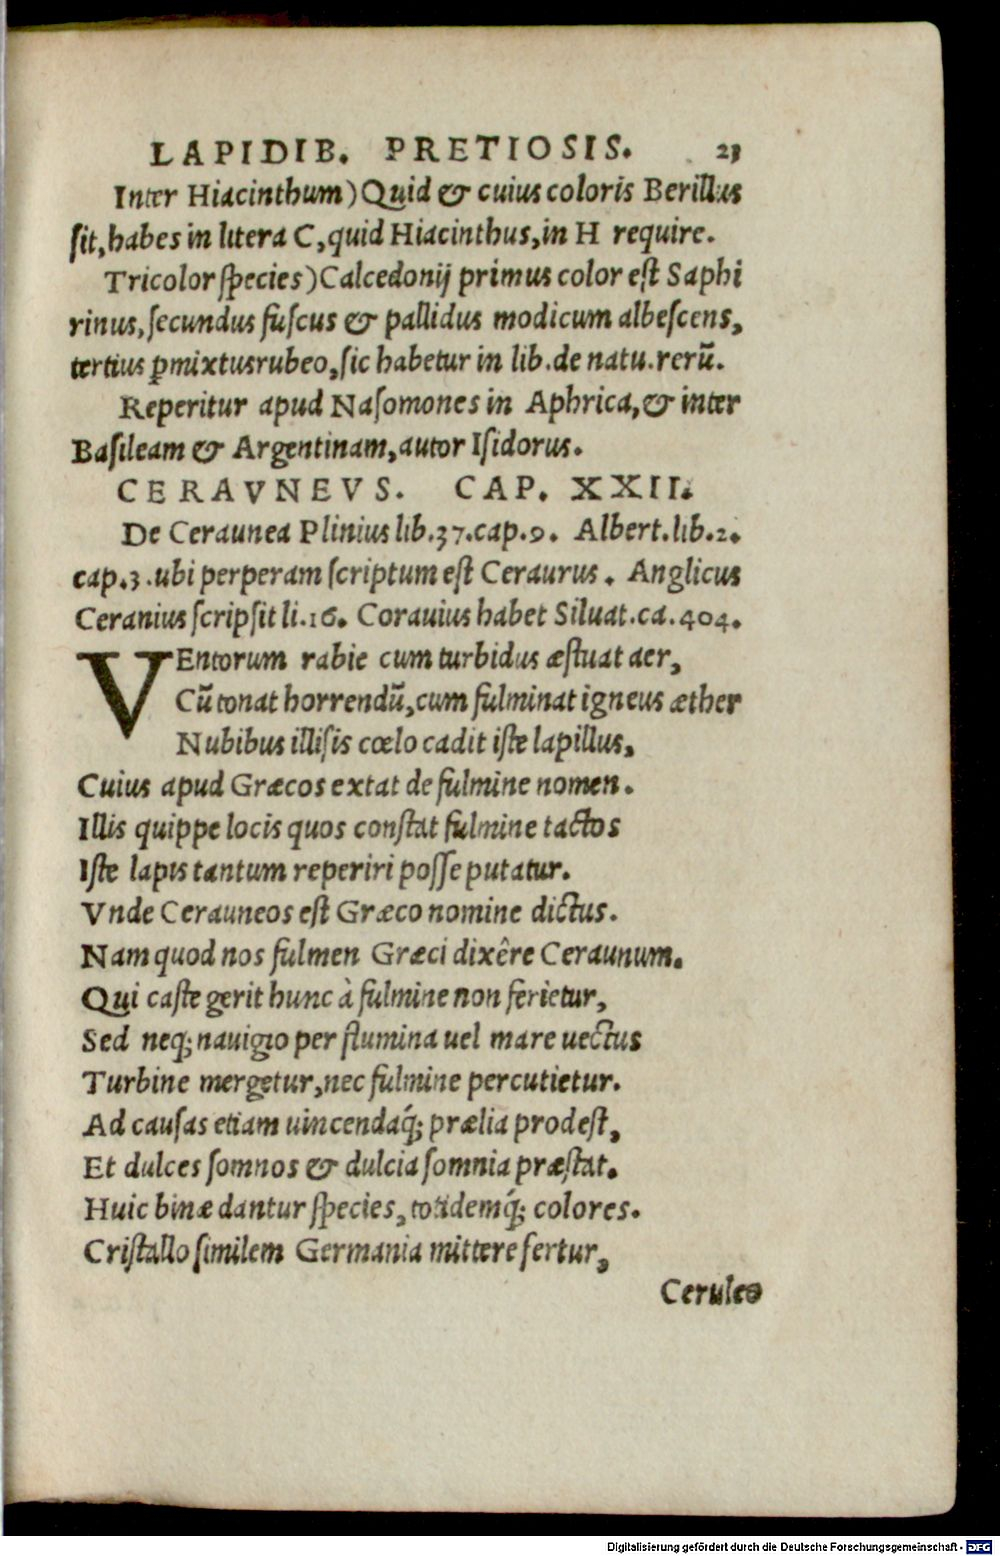 LAPIDIB. PRETIOSIS. 23
Inter Hiacinthum) Quid & cuius coloris Berillus
ſit, habes in litera C, quid Hiacinthus, in H require.
Tricolor ſpecies) Calcedonij primus color eſt Saphi
rinus, ſecundus fuſcus & pallidus modicum albeſcens,
tertius ꝑmixtus rubeo, ſic habetur in lib. de natu. rerū.
Reperitur apud Naſomones in Aphrica, & inter
Baſileam & Argentinam, autor Iſidorus.
CERAVNEVS. CAP. XXII.
De Ceraunea Plinius lib. 37. cap. 9. Albert. lib. 2.
cap. 3. ubi perperam ſcriptum eſt Ceraurus. Anglicus
Ceranius ſcripſit li. 16. Corauius habet Siluat. ca. 404.
VEntorum rabie cum turbidus æſtuat aer,
Cū tonat horrendū, cum fulminat igneus æther
Nubibus illiſis cœlo cadit iſte lapillus,
Cuius apud Græcos extat de fulmine nomen.
Illis quippe locis quos conſtat fulmine tactos
Iſte lapis tantum reperiri poſſe putatur.
Vnde Cerauneos eſt Græco nomine dictus.
Nam quod nos fulmen Græci dixêre Ceraunum.
Qui caſte gerit hunc à fulmine non ferietur,
Sed neq; nauigio per flumina uel mare uectus
Turbine mergetur, nec fulmine percutietur.
Ad cauſas etiam uincendaq́; prælia prodeſt,
Et dulces ſomnos & dulcia ſomnia præſtat.
Huic binæ dantur ſpecies, totidemq́; colores.
Criſtallo ſimilem Germania mittere fertur,
Ceruleo
Digitalisierung gefördert durch die Deutsche Forschungsgemeinschaft - DFG